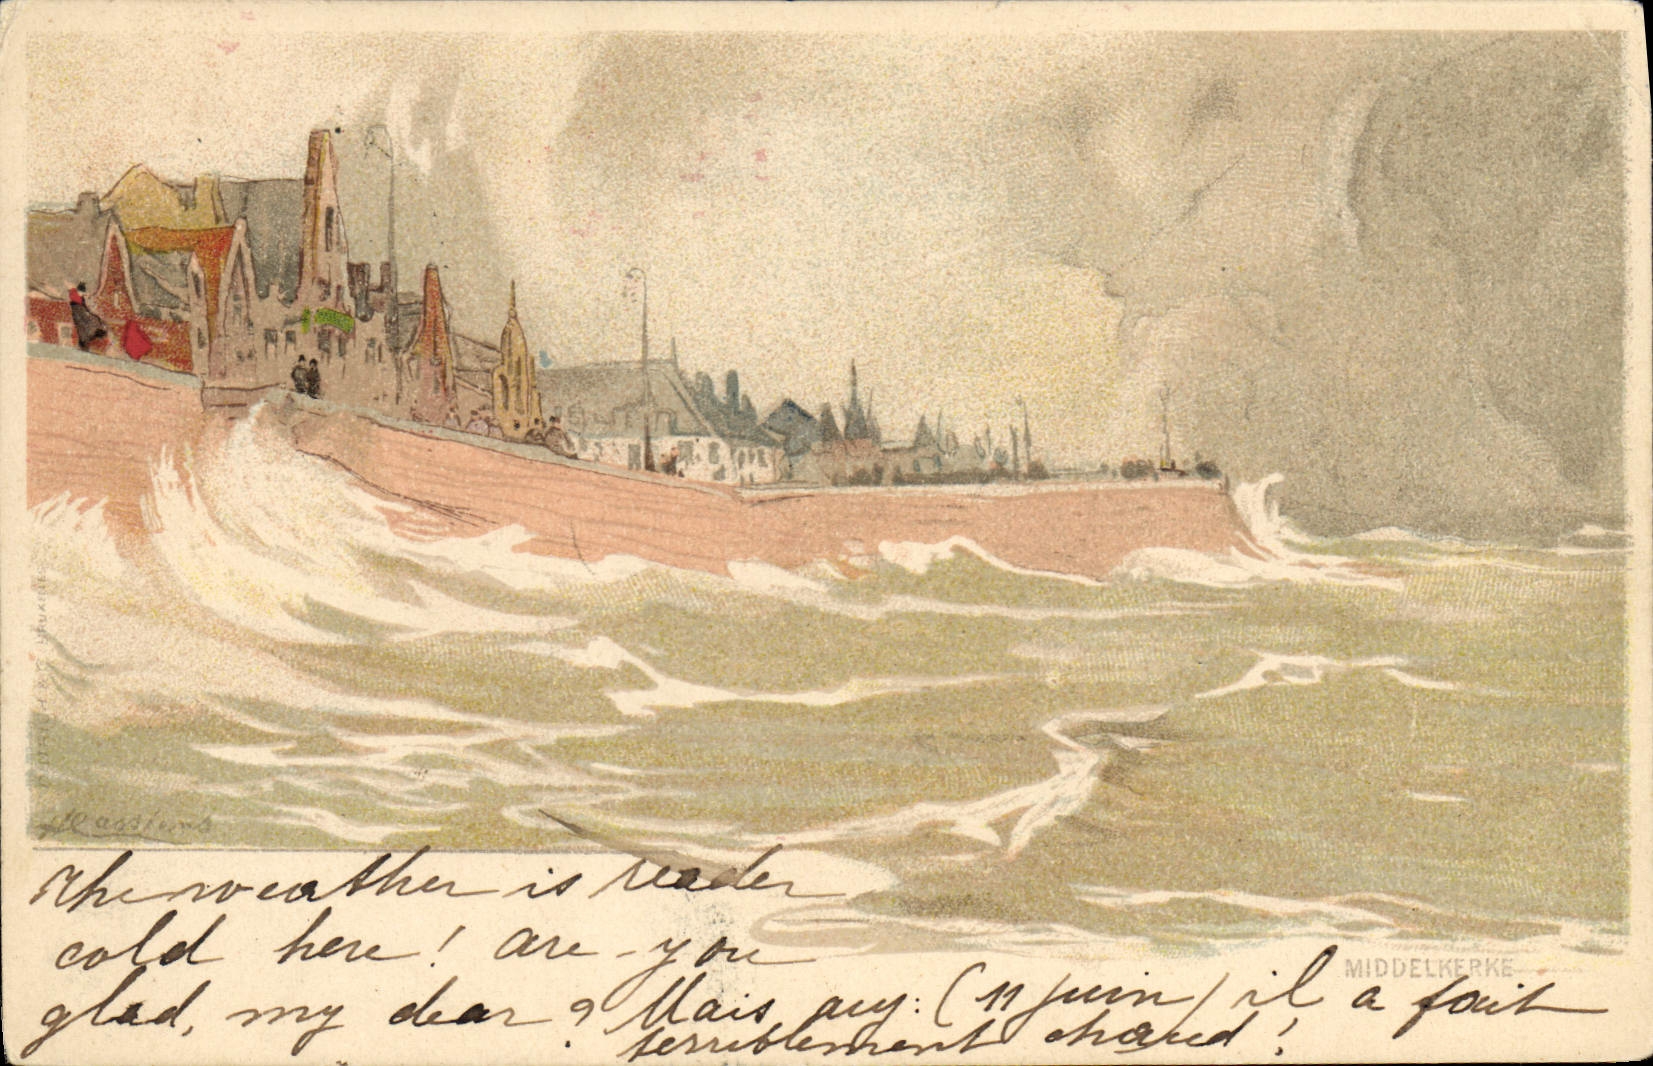 Cassiers
The weather is reader
cold here! are you
glad, my dear? Mais auj: (11 juin) il a fait
terriblement chaud!
MIDDELKERKE